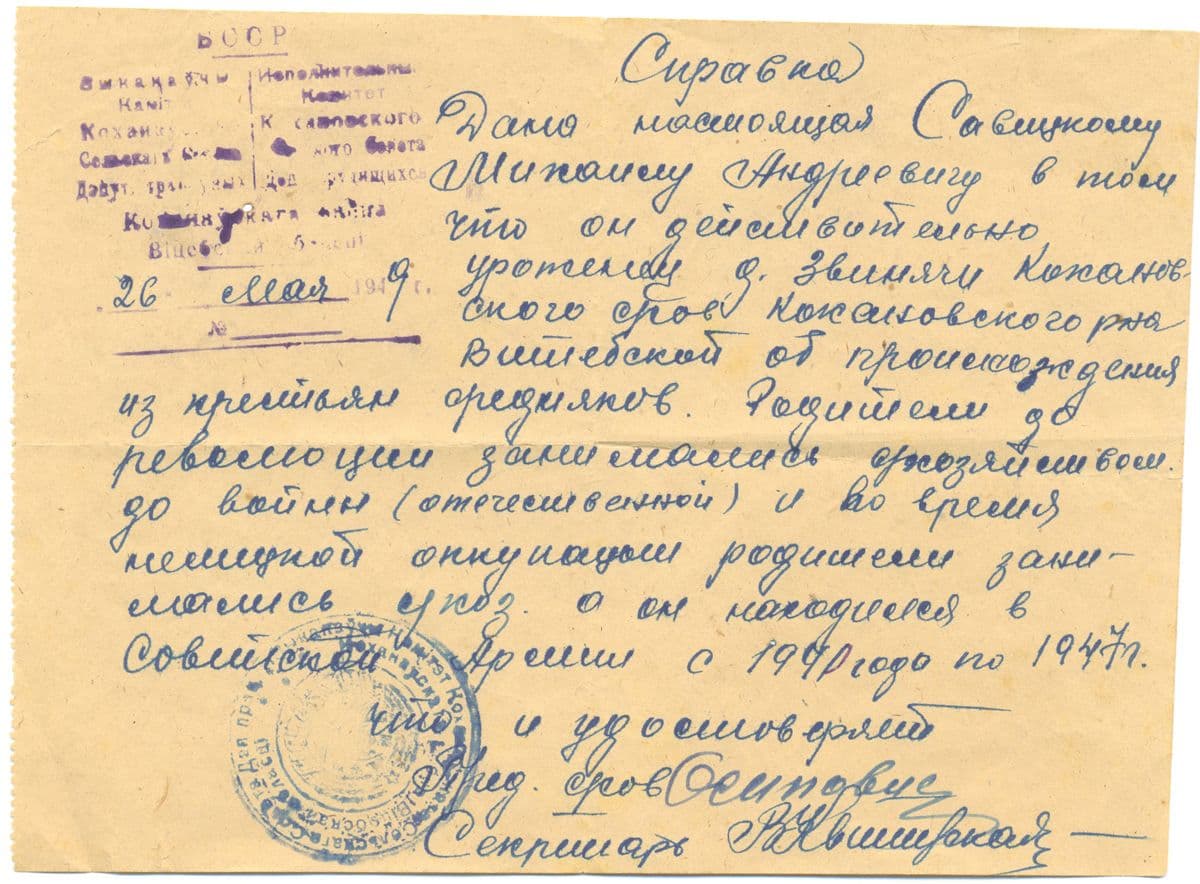 БССР
Выканаўчы
Камітэт
Коханаўскага
Сельскага Савета
Дэпут. працоўных
Исполнительный
Комитет
Кохановского
Сельского Совета
Деп. трудящихся
Коханаўскага раёна
Віцебскай вобласці
26 Мая 1949 г.
№
Справка
Дана настоящая Савицкому
Михаилу Андреевичу в том
что он действительно
уроженец д. Звинячи Кохановского
ского с/сов Кохановского р-на
Витебской об происхождения
из крестьян середняков. Родители до
революции занимались с/хозяйством.
до войны (отечественной) и во время
немецкой оккупации родители зани-
мались с/хоз. а он находился в
Совитской Армии с 1940 года по 1947 г.
что и удостоверяет
Пред. с/сов Осипович
Секритарь